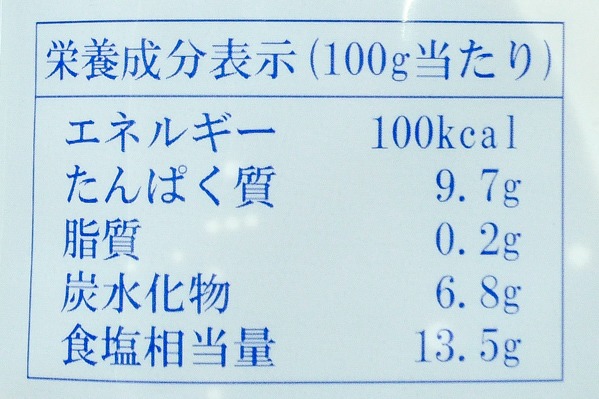 栄養成分表示(100g当たり)
エネルギー 100kcal
たんぱく質 9.7g
脂質 0.2g
炭水化物 6.8g
食塩相当量 13.5g